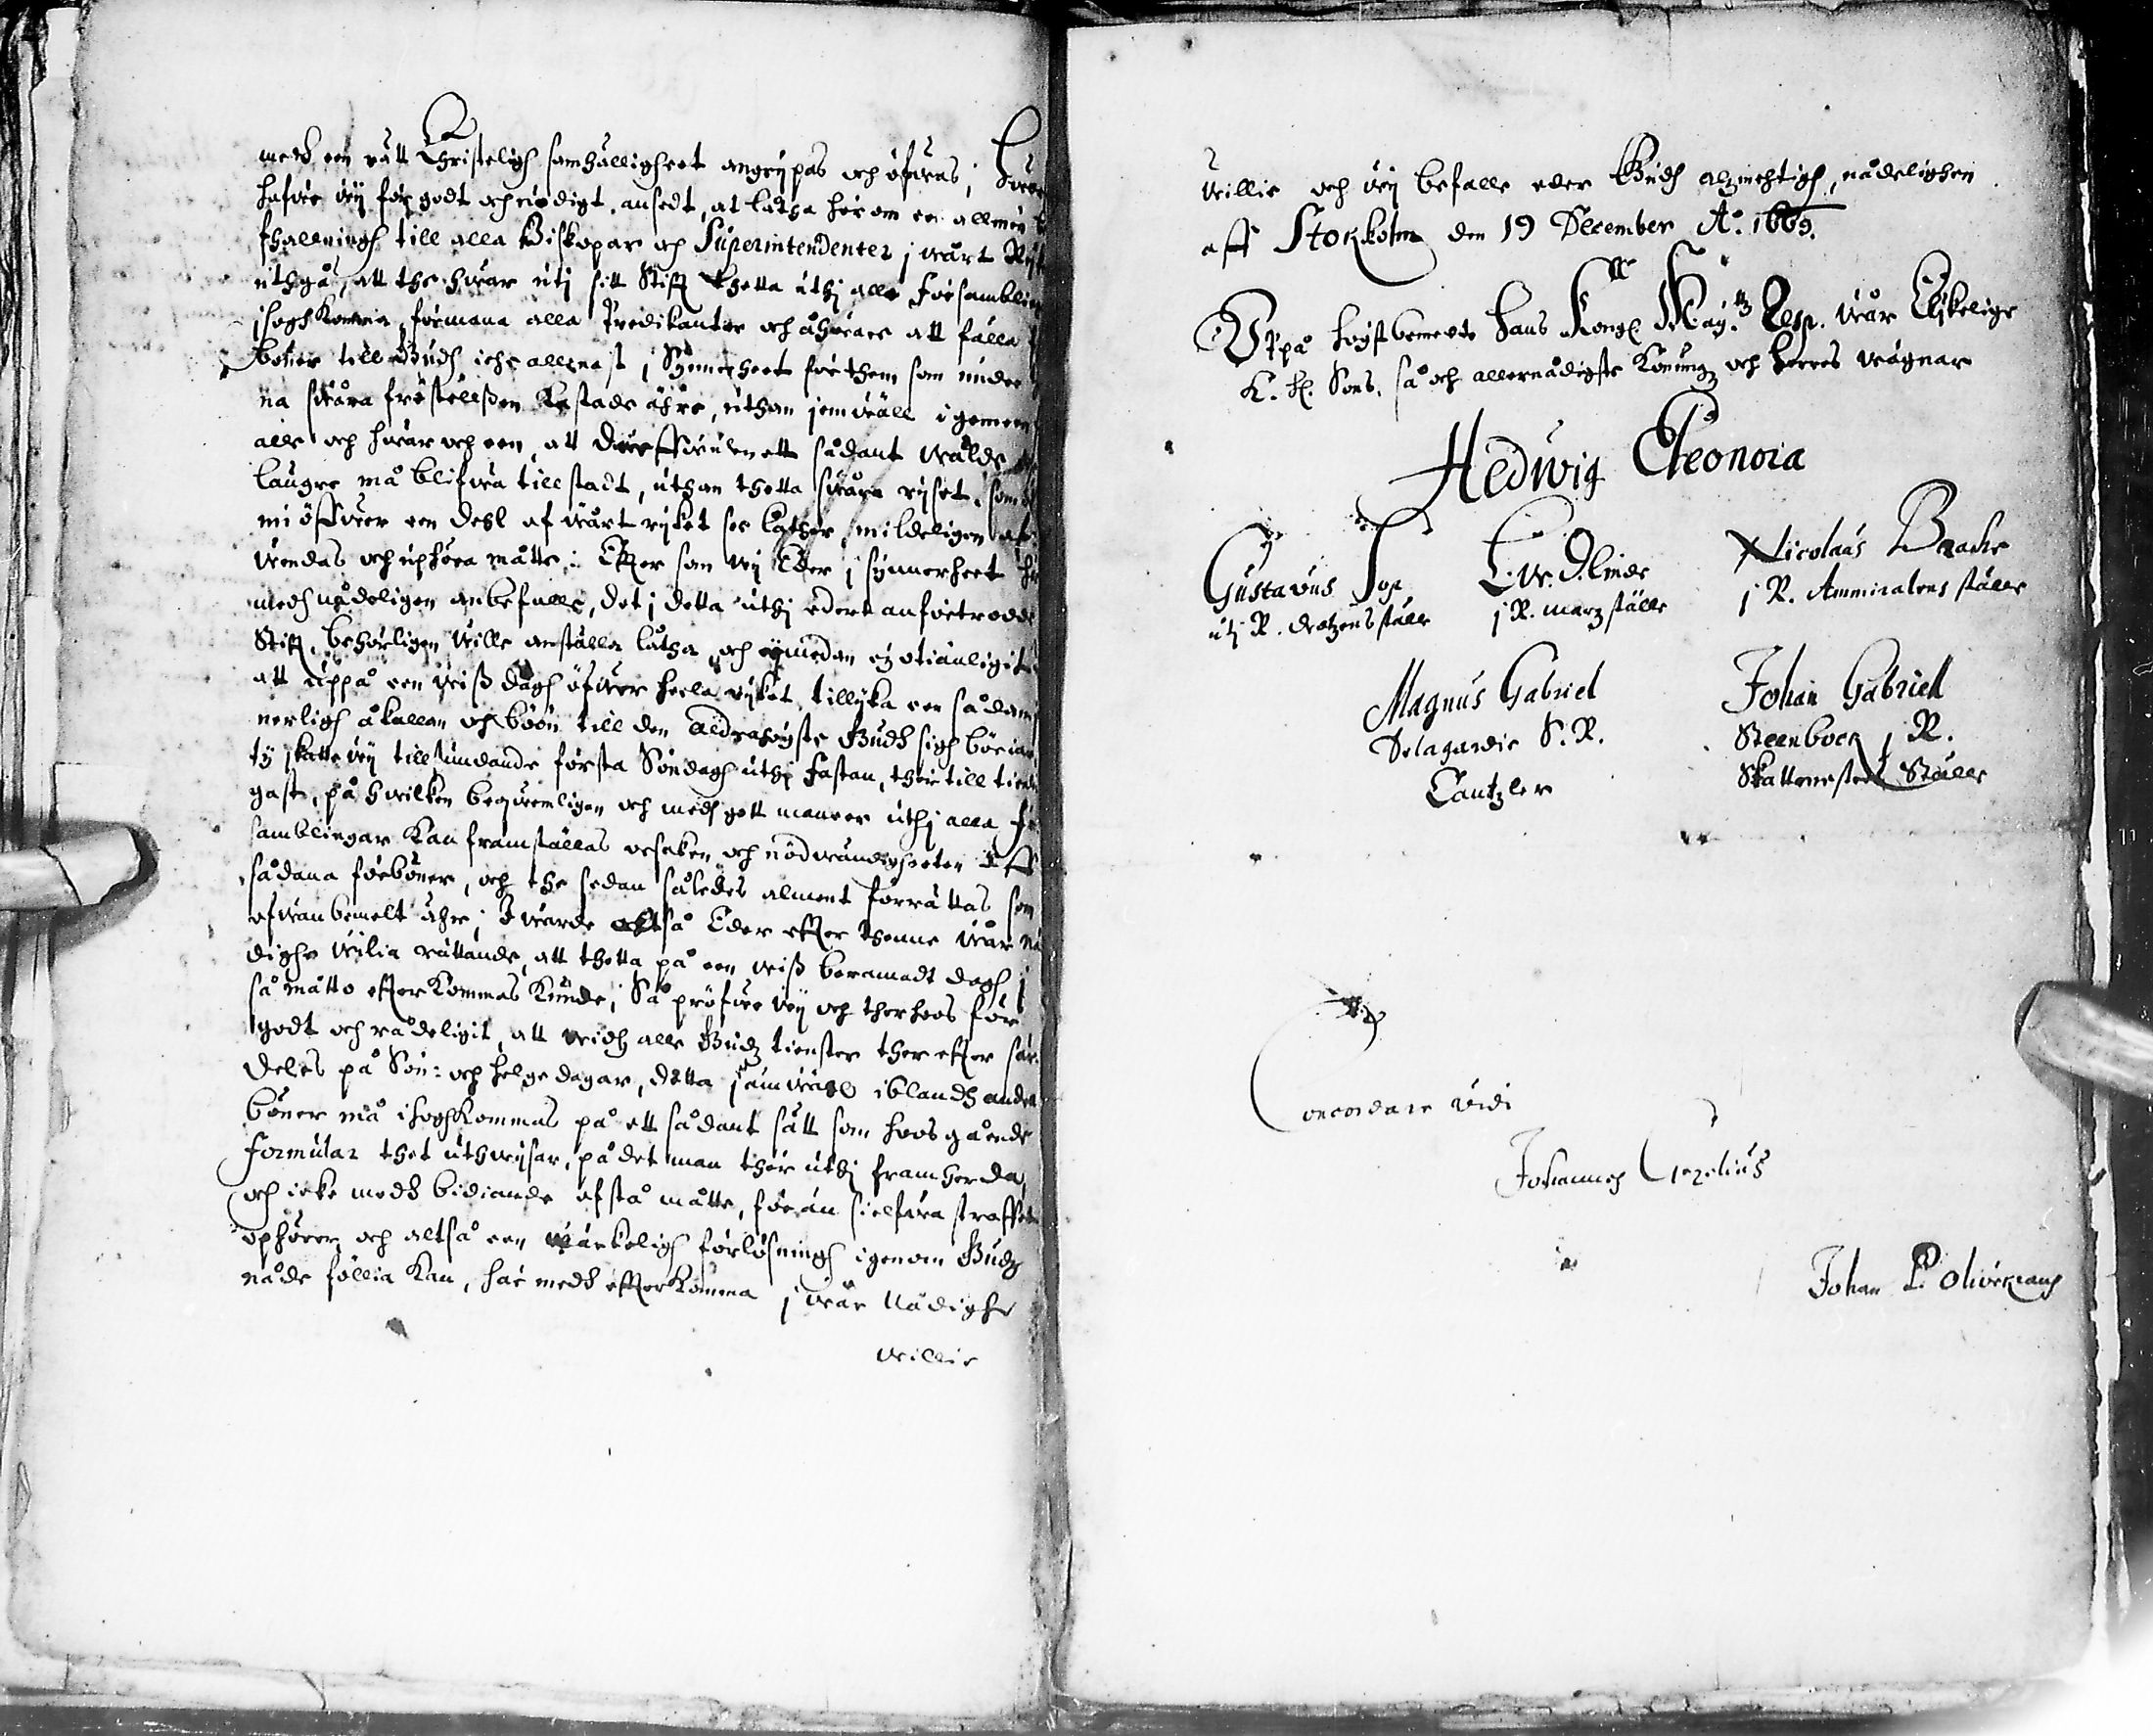 medh een rätt Christeligh samhälligheet angrijpas och öfwas;
hafwe wij för godt och nödigt ansedt, at låtha här om en allmen
fhallningh till alla Biskopar och Superintendenter i wårt Rijk
uthgå, att the hwar utj sitt Stift thetta uthj alla Församblin
ihoghkomma, förmana alla Predikanter och åhörare att fälla
böner till Gudh icke allenast i Synnerheet för them som under
na swåra frestellßen kastade ähre, uthan jemwäll i gemeen
alle och hwar och een, att dieffwulen ett sådant wälde
längre må blifwa tillstadt, uthan thetta swåra rijset, som
mi öffwer een deel af wårt rijket see låther, mildeligen af
wendas och uphöra måtte; Effter som wij Eder i synnerheet
medh nådeligen anbefalle, det i detta uthj edert anförtrodde
Stift, behörligen wille anställa låtha, och eijmedan eij otiänligit
att uppå een wiß dagh öfwer heela rijket tillijka een sådan
nerligh åkallan och böön till den Aldrahögste Gudh sigh börian
ty skatte wij tillstundande första Söndagh uthj fastan, ther till tienl
gast, på hwilken beqwemligen och medh gott maneer uthj alla För
samblingar kan framställas orsaken och nödwändigheeten aff
sådana förböner, och the sedan således alment förrättas som
ofwanbemelt ähr; I warde altså Eder effter thenne wår Nå
dighe wilia rättande, att thetta på een wiß beramadt dagh j
så måtto effterkommas kunde; Så pröfwe wij och therhoos för
godt och rådeligit, att widh alle Gudz tienster ther effter sär
deles på Sön: och helgedagar, detta jämwäl iblandh andra
böner må ihoghkommas på ett sådant sätt som hoos gående
Formular thet uthwijsar, på det man ther uthj framherda,
och icke medh bidiande afstå måtte, förän sielfwa straffet
ophörer och altså een wärkeligh förlösningh igenom Gudz
nåde föllia kan, här medh effterkomma i wår Nådighe
willie
willie och wij befalle eder Gudh alzmechtigh, nådelighen
aff Stockholm den 19 December A:o 1669.
Uppå högstbemelte Hans Kongl May:tz Resp. wår Elskelige
K. H. Sons, så och allernådigste Konungz och herres wägnar
Hedwig Eleonora
Gustavus Sop
utj R. drotzens ställe
L: W: D. linde
j R. marz ställe
Nicolaus Brahe
j R. Ammiralens ställe
Magnus Gabriel
Delagardie S. R.
Cantzler
Johan Gabriell
Steenbock j R.
Skattmester Ställe
Concordare vidi
Johannes Gezelius
Johan P. Olivecrantz